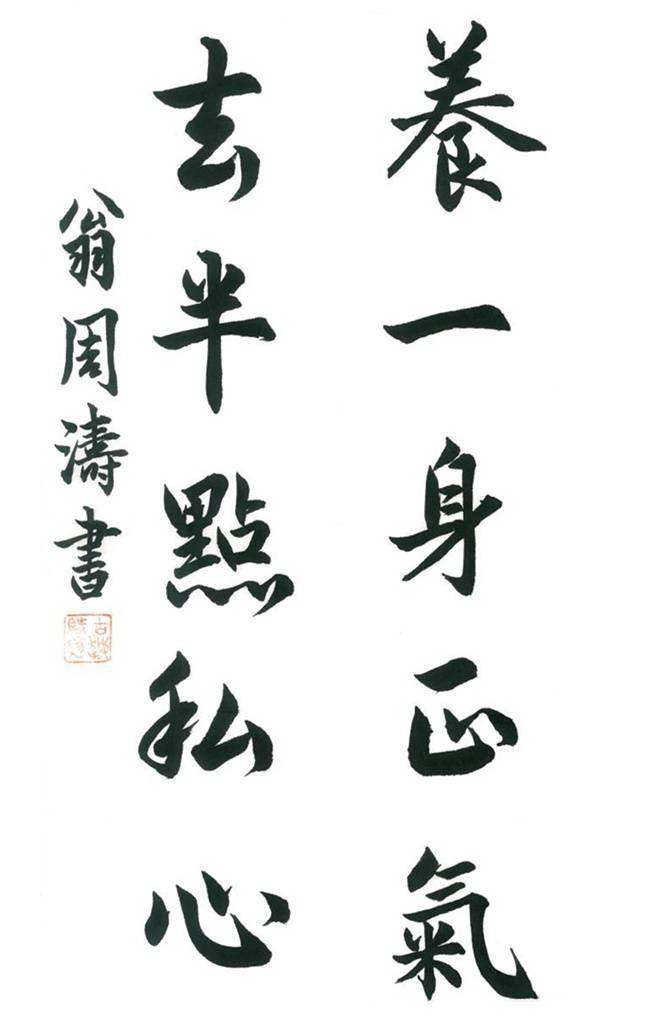 養一身正氣
去半點私心
翁周濤書